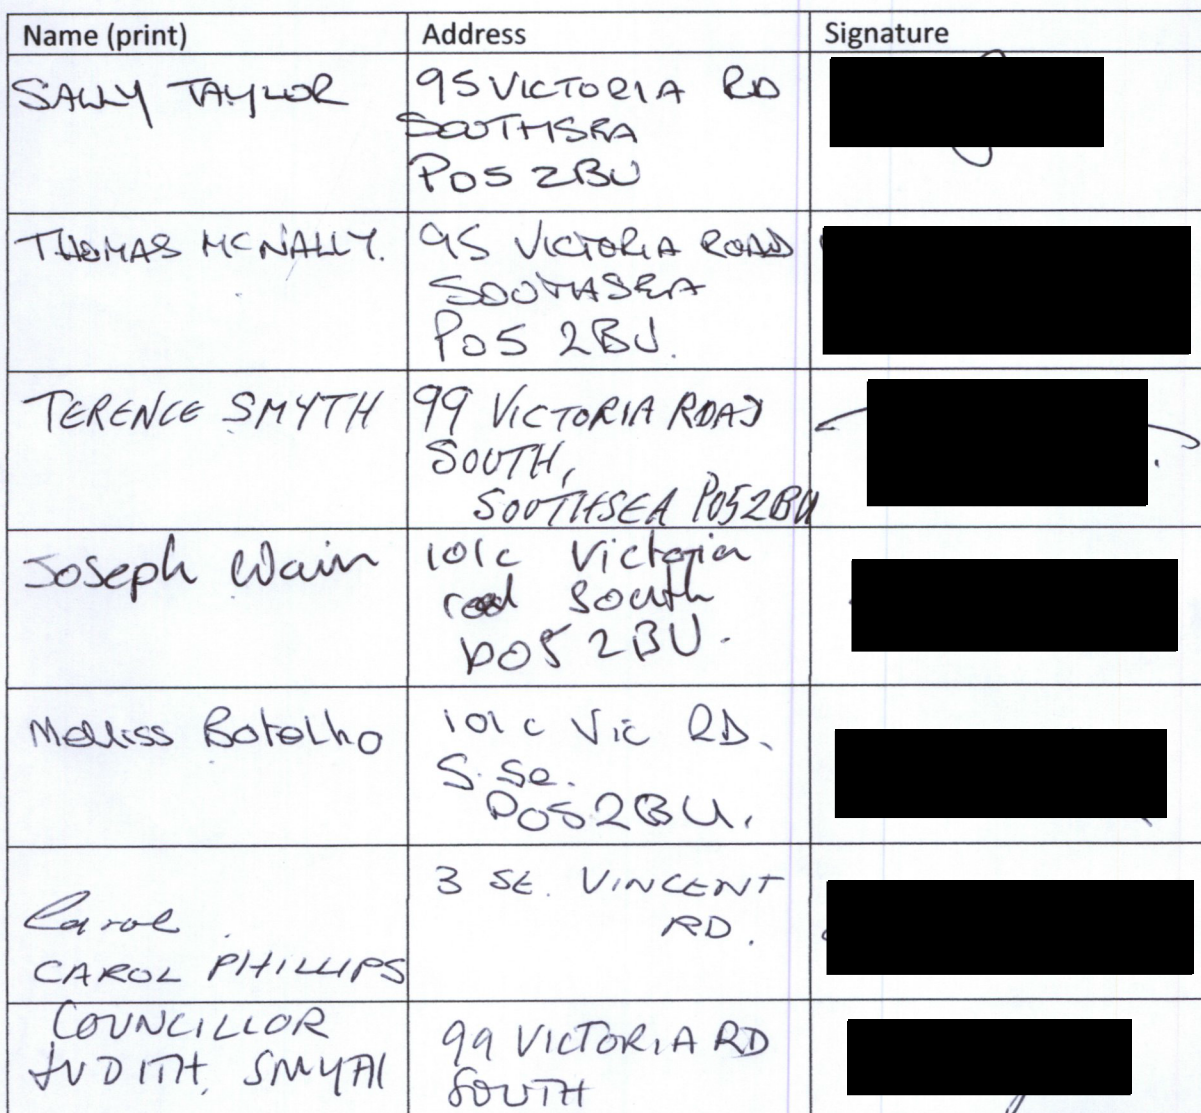 Name (print) Address Signature
SALLY TAYLOR 95 VICTORIA RD
SOUTHSEA
PO5 2BU
THOMAS MCNALLY. 95 VICTORIA ROAD
SOUTHSEA
PO5 2BU.
TERENCE SMYTH 99 VICTORIA ROAD
SOUTH,
SOUTHSEA PO52BU
Joseph Wain 101c Victoria
road South
PO5 2BU.
Melliss Botelho 101c Vic RD.
S. Se.
PO52BU.
3 St. VINCENT
RD.
Carol
CAROL PHILLIPS
COUNCILLOR
JUDITH SMYTH 99 VICTORIA RD
SOUTH